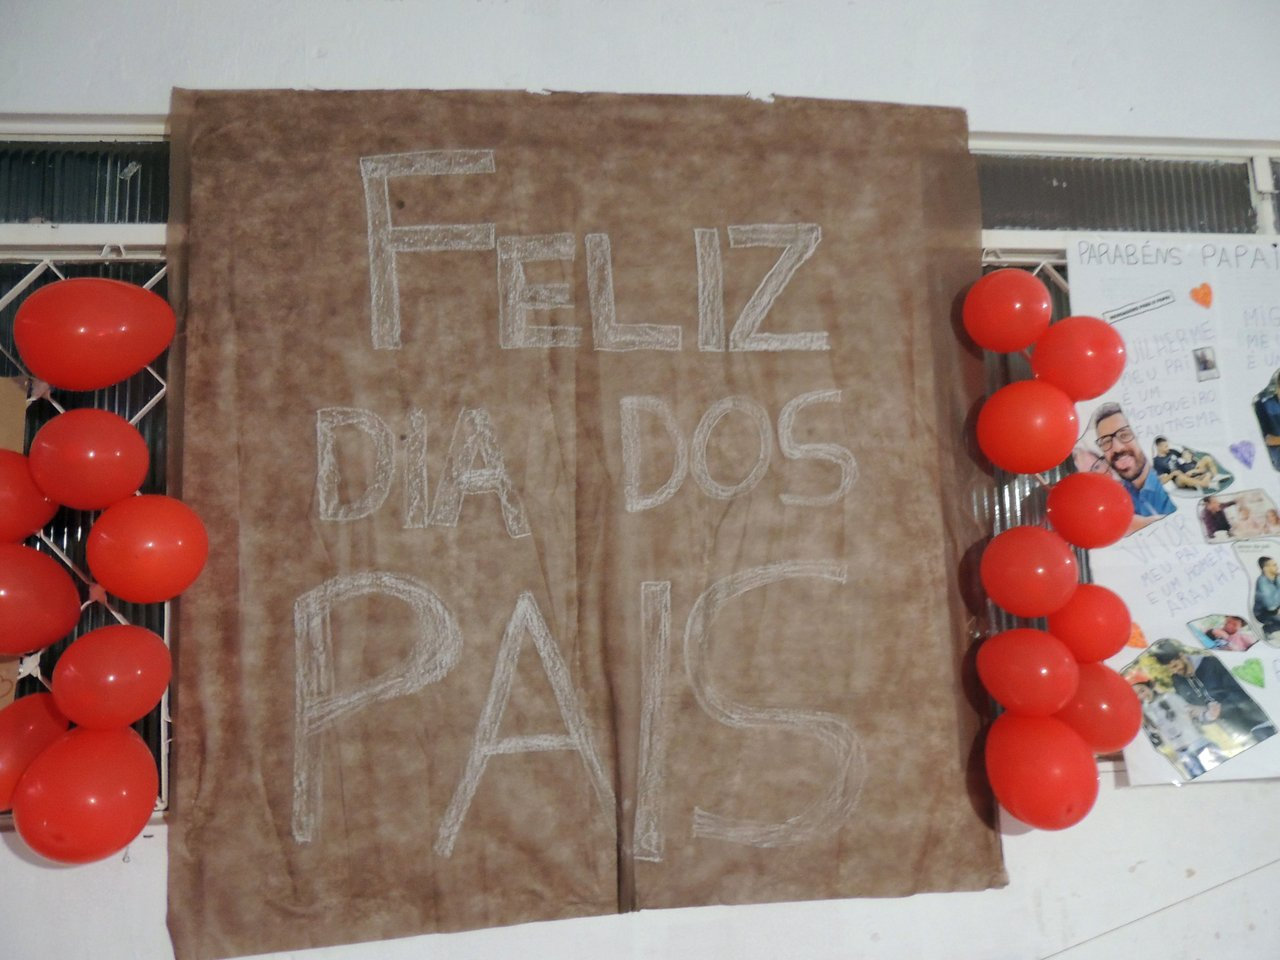 FELIZ
DIA DOS
PAIS
PARABÉNS PAPAI
GUILHERME
MEU PAI
É UM
MOTOQUEIRO
FANTASMA
VITOR
MEU PAI
E UM HOMEM
ARANHA
ME
É UM